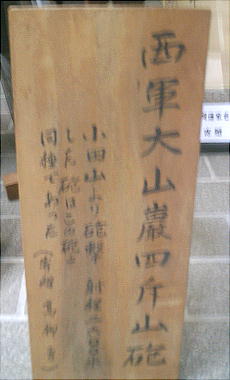 西軍大山巌四斤山砲
小田山より砲撃 射程二六〇〇米
した砲はこの砲と
同種であった